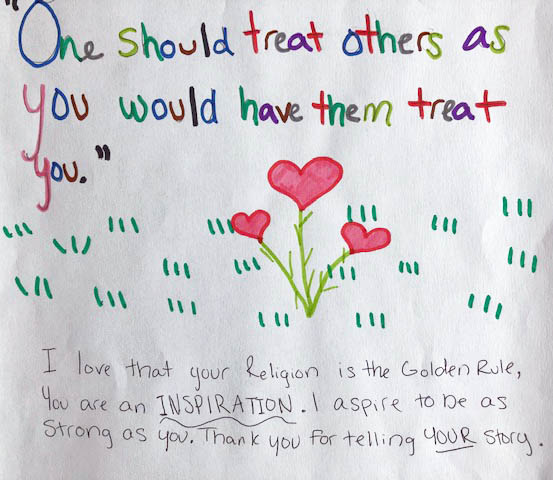 "One should treat others as
you would have them treat
you."
I love that your Religion is the Golden Rule,
You are an INSPIRATION. I aspire to be as
strong as you. Thank you for telling YOUR story.